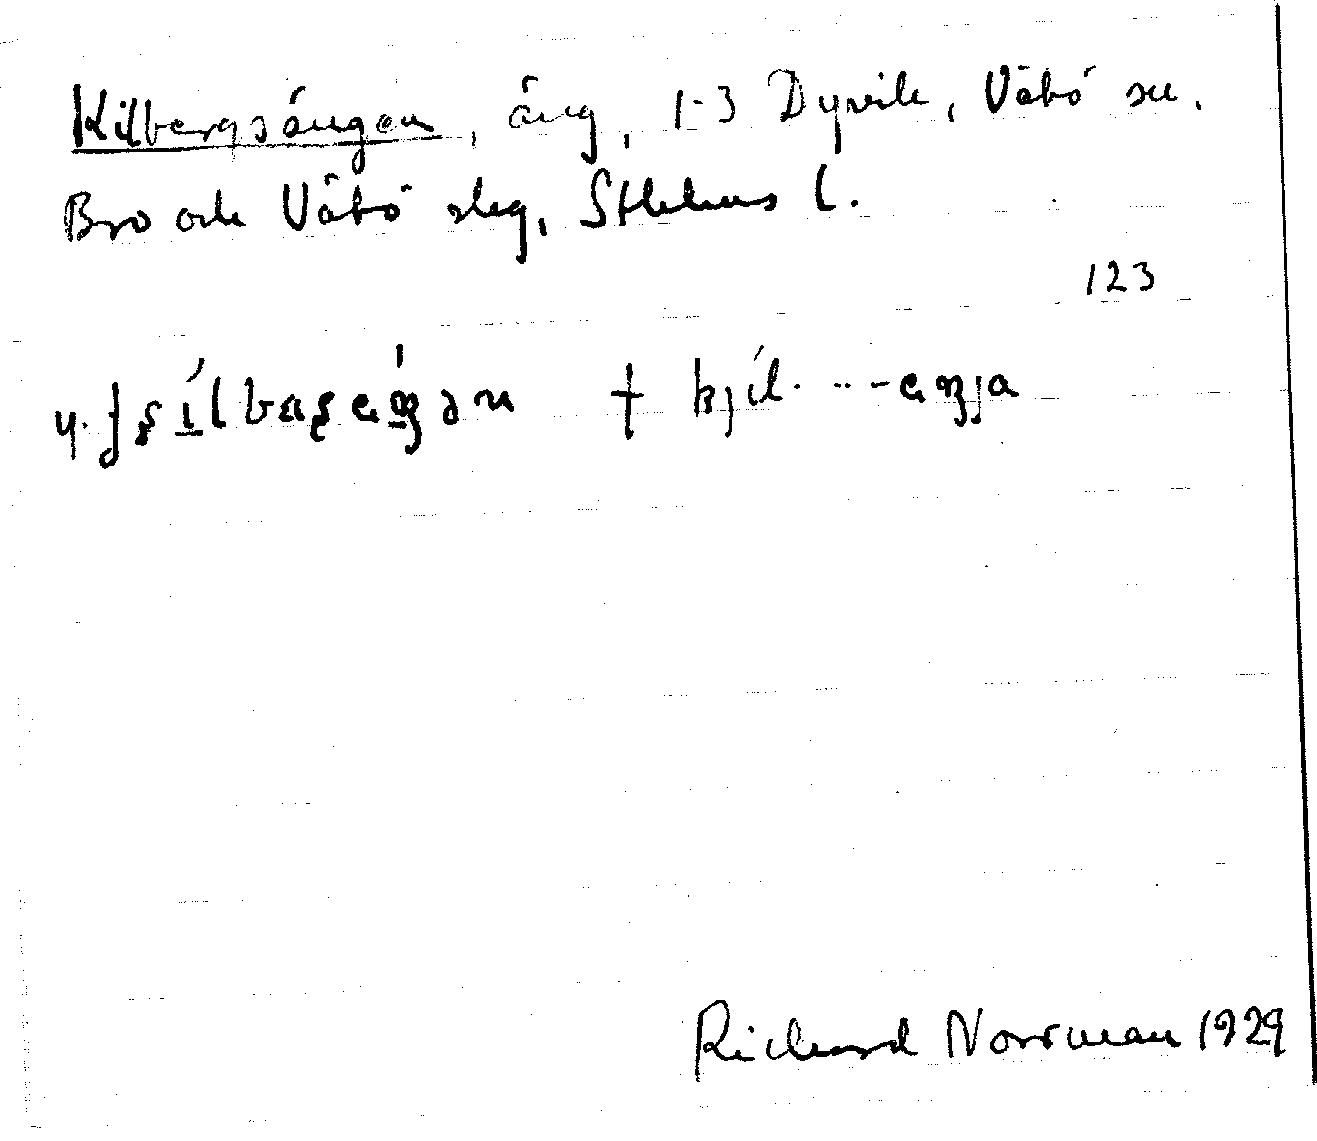 Kilbergsängen, äng, 1-3 Dyvik, Vätö sn.
Bro och Vätö skg, Sthlms l.
123
y.
† kjil· ··-eŋja
Richard Norrman 1929